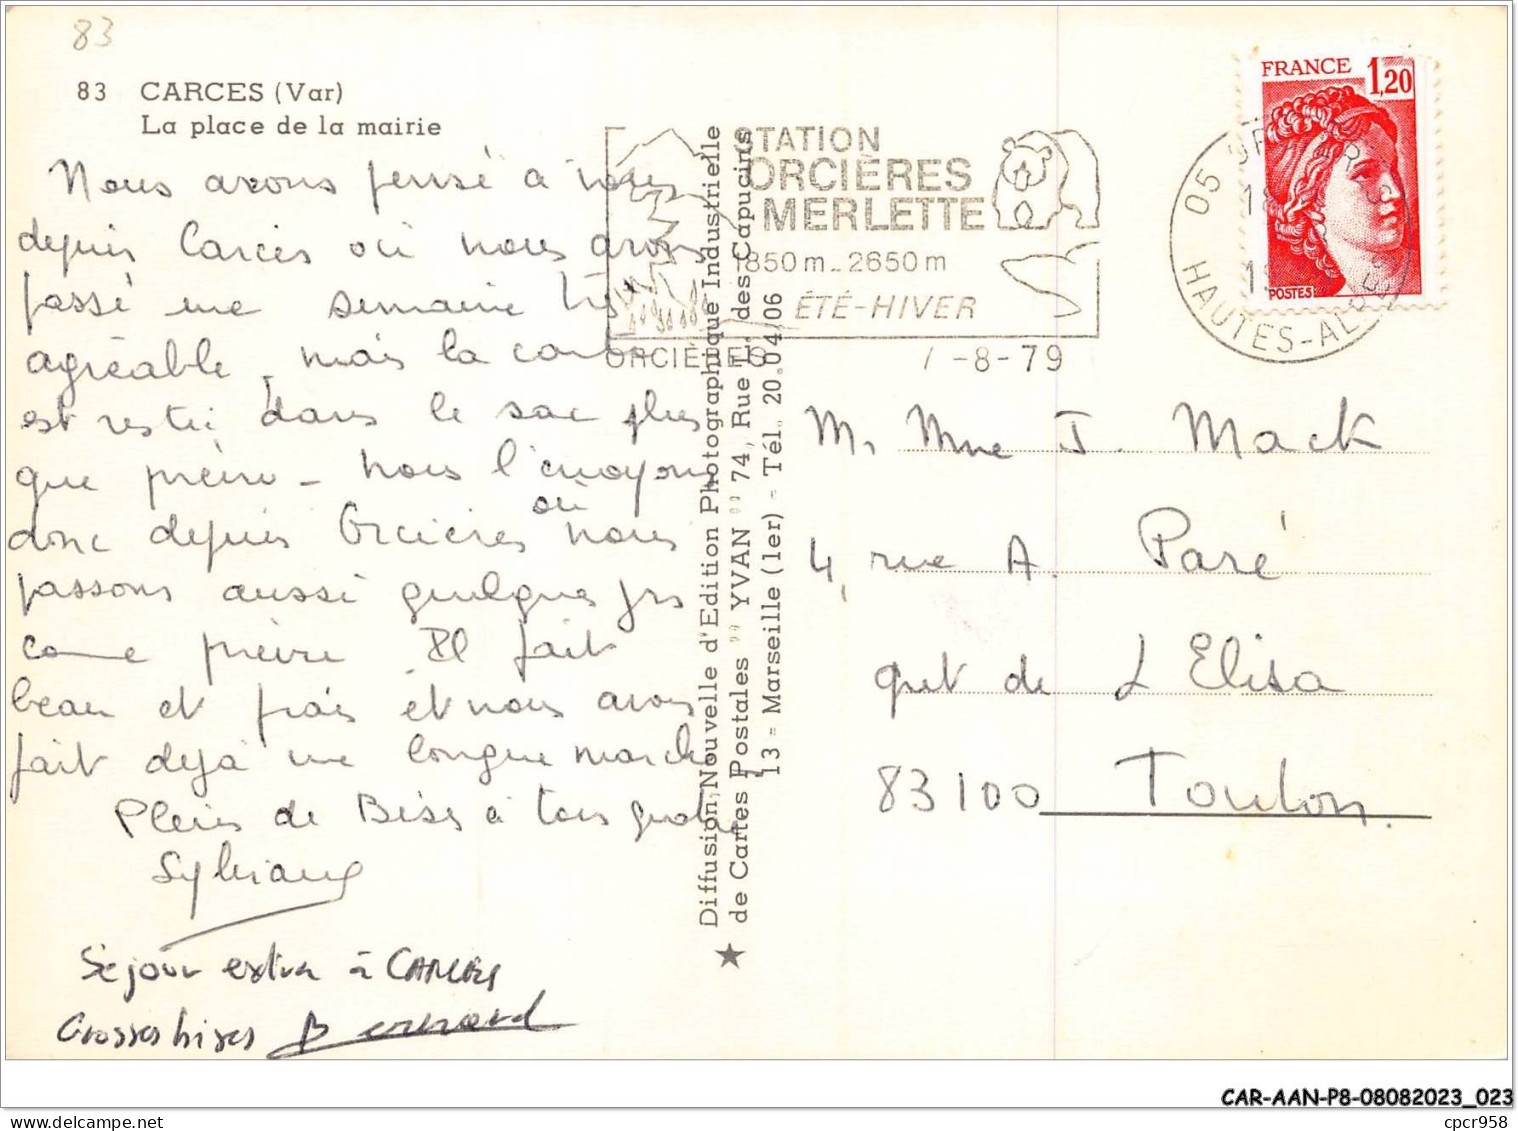 83
83 CARCES (Var)
La place de la mairie
Nous avons pensé à vous
depuis Carcès où nous avons
passé une semaine très
agréable, mais la carte
est restée dans le sac plus
que prévu - Nous l'envoyons
donc depuis Orcières où nous
passons aussi quelques jrs
come prévu Il fait
beau et frais et nous avons
fait déjà une longue marche
Pleins de Bises à tous quatre
Sylviane
Séjour extra à CARCES
Grosses bises Bernard
Diffusion Nouvelle d'Edition Photographique Industrielle
de Cartes Postales " YVAN " 74, Rue L. des Capucins
13 - Marseille (1er) - Tél. 20.04/06
STATION
ORCIÈRES
MERLETTE
1850 m - 2650 m
ÉTÉ-HIVER
ORCIÈRES
1-8-79
FRANCE 1,20
POSTES
05
HAUTES-ALPES
M. Mme J. Mack
4, rue A. Paré
qut de L'Elisa
83100 Toulon.
CAR-AAN-P8-08082023_023
www.delcampe.net
cpcr958